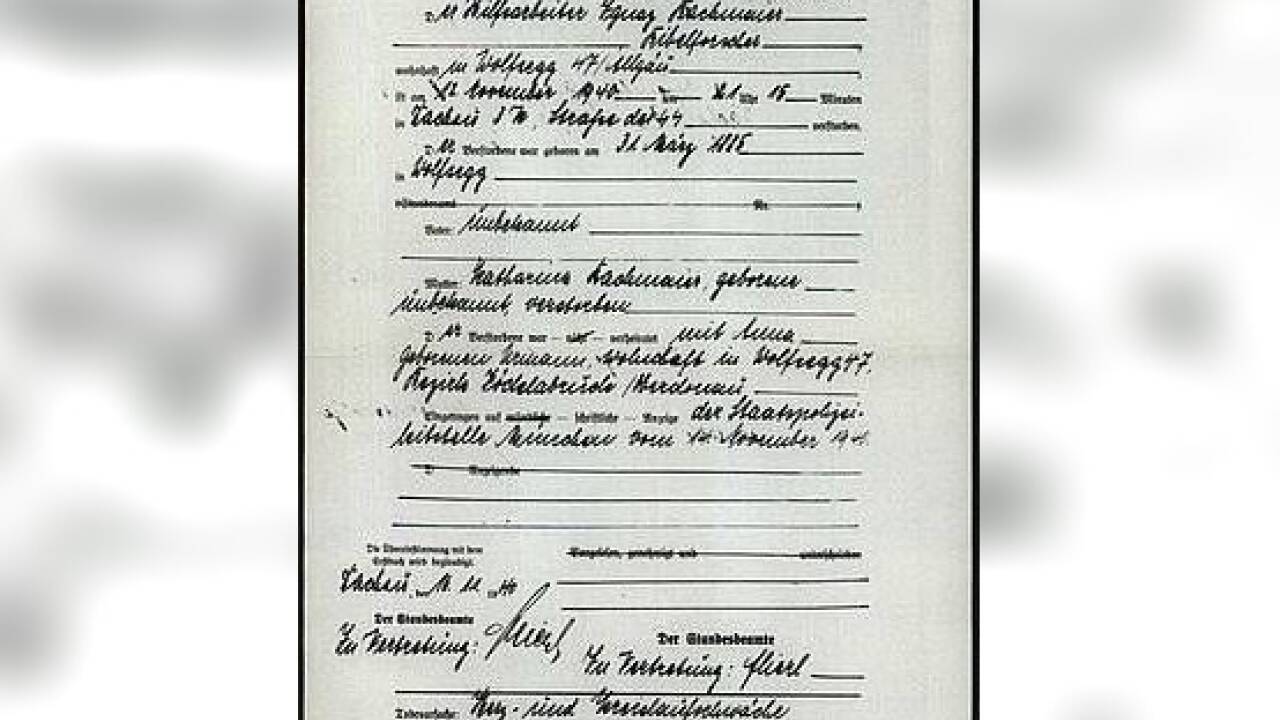 Der Hilfsarbeiter Ignaz Kachmaier
wohnhaft in Wolfegg 47 Allgäu
ist am 12 November 1940 um 21 Uhr 15 Minuten
in Dachau 3 K, Straße der SS verstorben.
Der Verstorbene war geboren am 31 März
in Wolfegg
Standesamt Nr.
Vater: Unbekannt
Mutter: Katharina Kachmaier, geborene
Unbekannt, verstorben
Der Verstorbene war — nicht — verheiratet mit Anna
geborenen wohnhaft in Wolfegg 47,
Eingetragen auf mündliche — schriftliche — Anzeige der Staatspolizei-
leitstelle München vom 14. November
D Anzeigende
Die Übereinstimmung mit dem
Erstbuch wird beglaubigt.
Vorgelesen, genehmigt und unterschrieben
Dachau, den 11
Der Standesbeamte
In Vertretung:
Der Standesbeamte
In Vertretung:
Todesursache: Herz- und Kreislaufschwäche